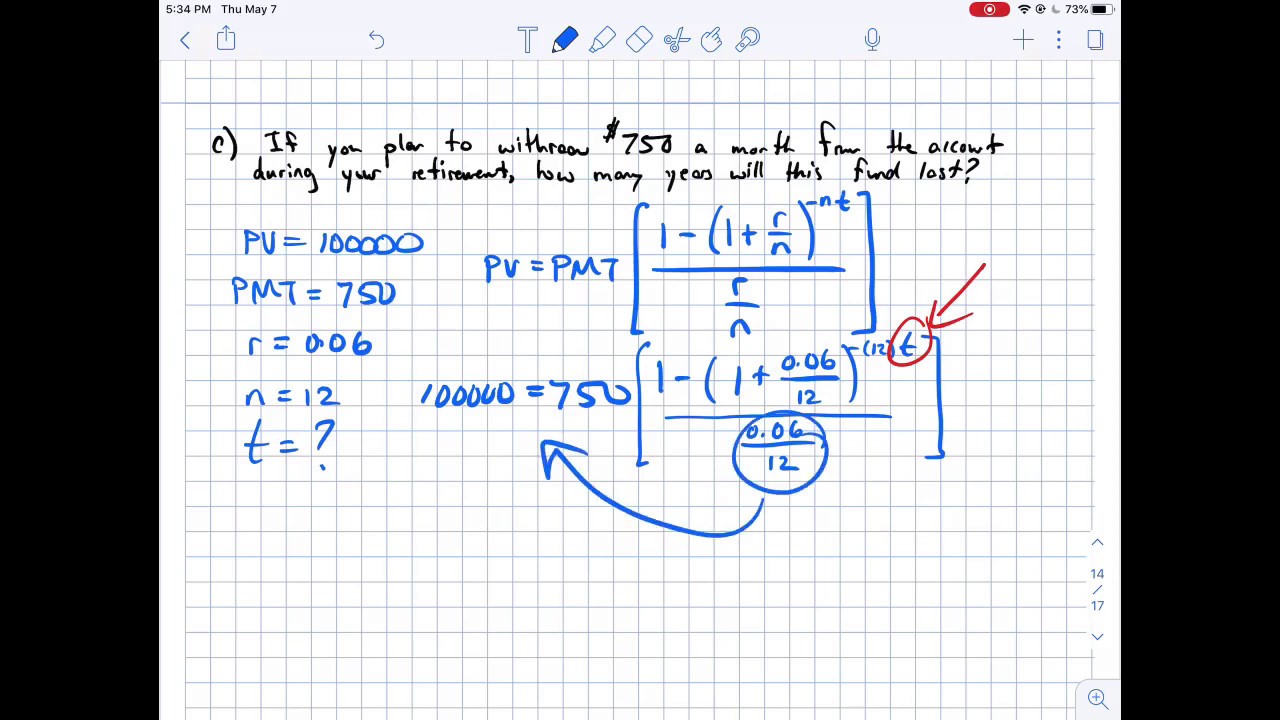 5:34 PM Thu May 7
73%
T
c) If you plan to withdraw $750 a month from the account
during your retirement, how many years will this fund last?
PV = 100000
PMT = 750
r = 0.06
n = 12
t = ?
PV = PMT [ 1 - (1 + r/n)^-nt / r/n ]
100000 = 750 [ 1 - (1 + 0.06/12)^-(12)t / 0.06/12 ]
14
/
17